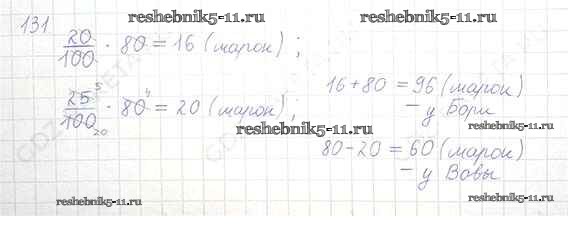 reshebnik5-11.ru
131
20/100 · 80 = 16 (марок);
25/100 · 80 = 20 (марок);
5
4
20
reshebnik5-11.ru
16 + 80 = 96 (марок)
– у Бори
reshebnik5-11.ru
80 – 20 = 60 (марок)
– у Вовы
reshebnik5-11.ru
reshebnik5-11.ru